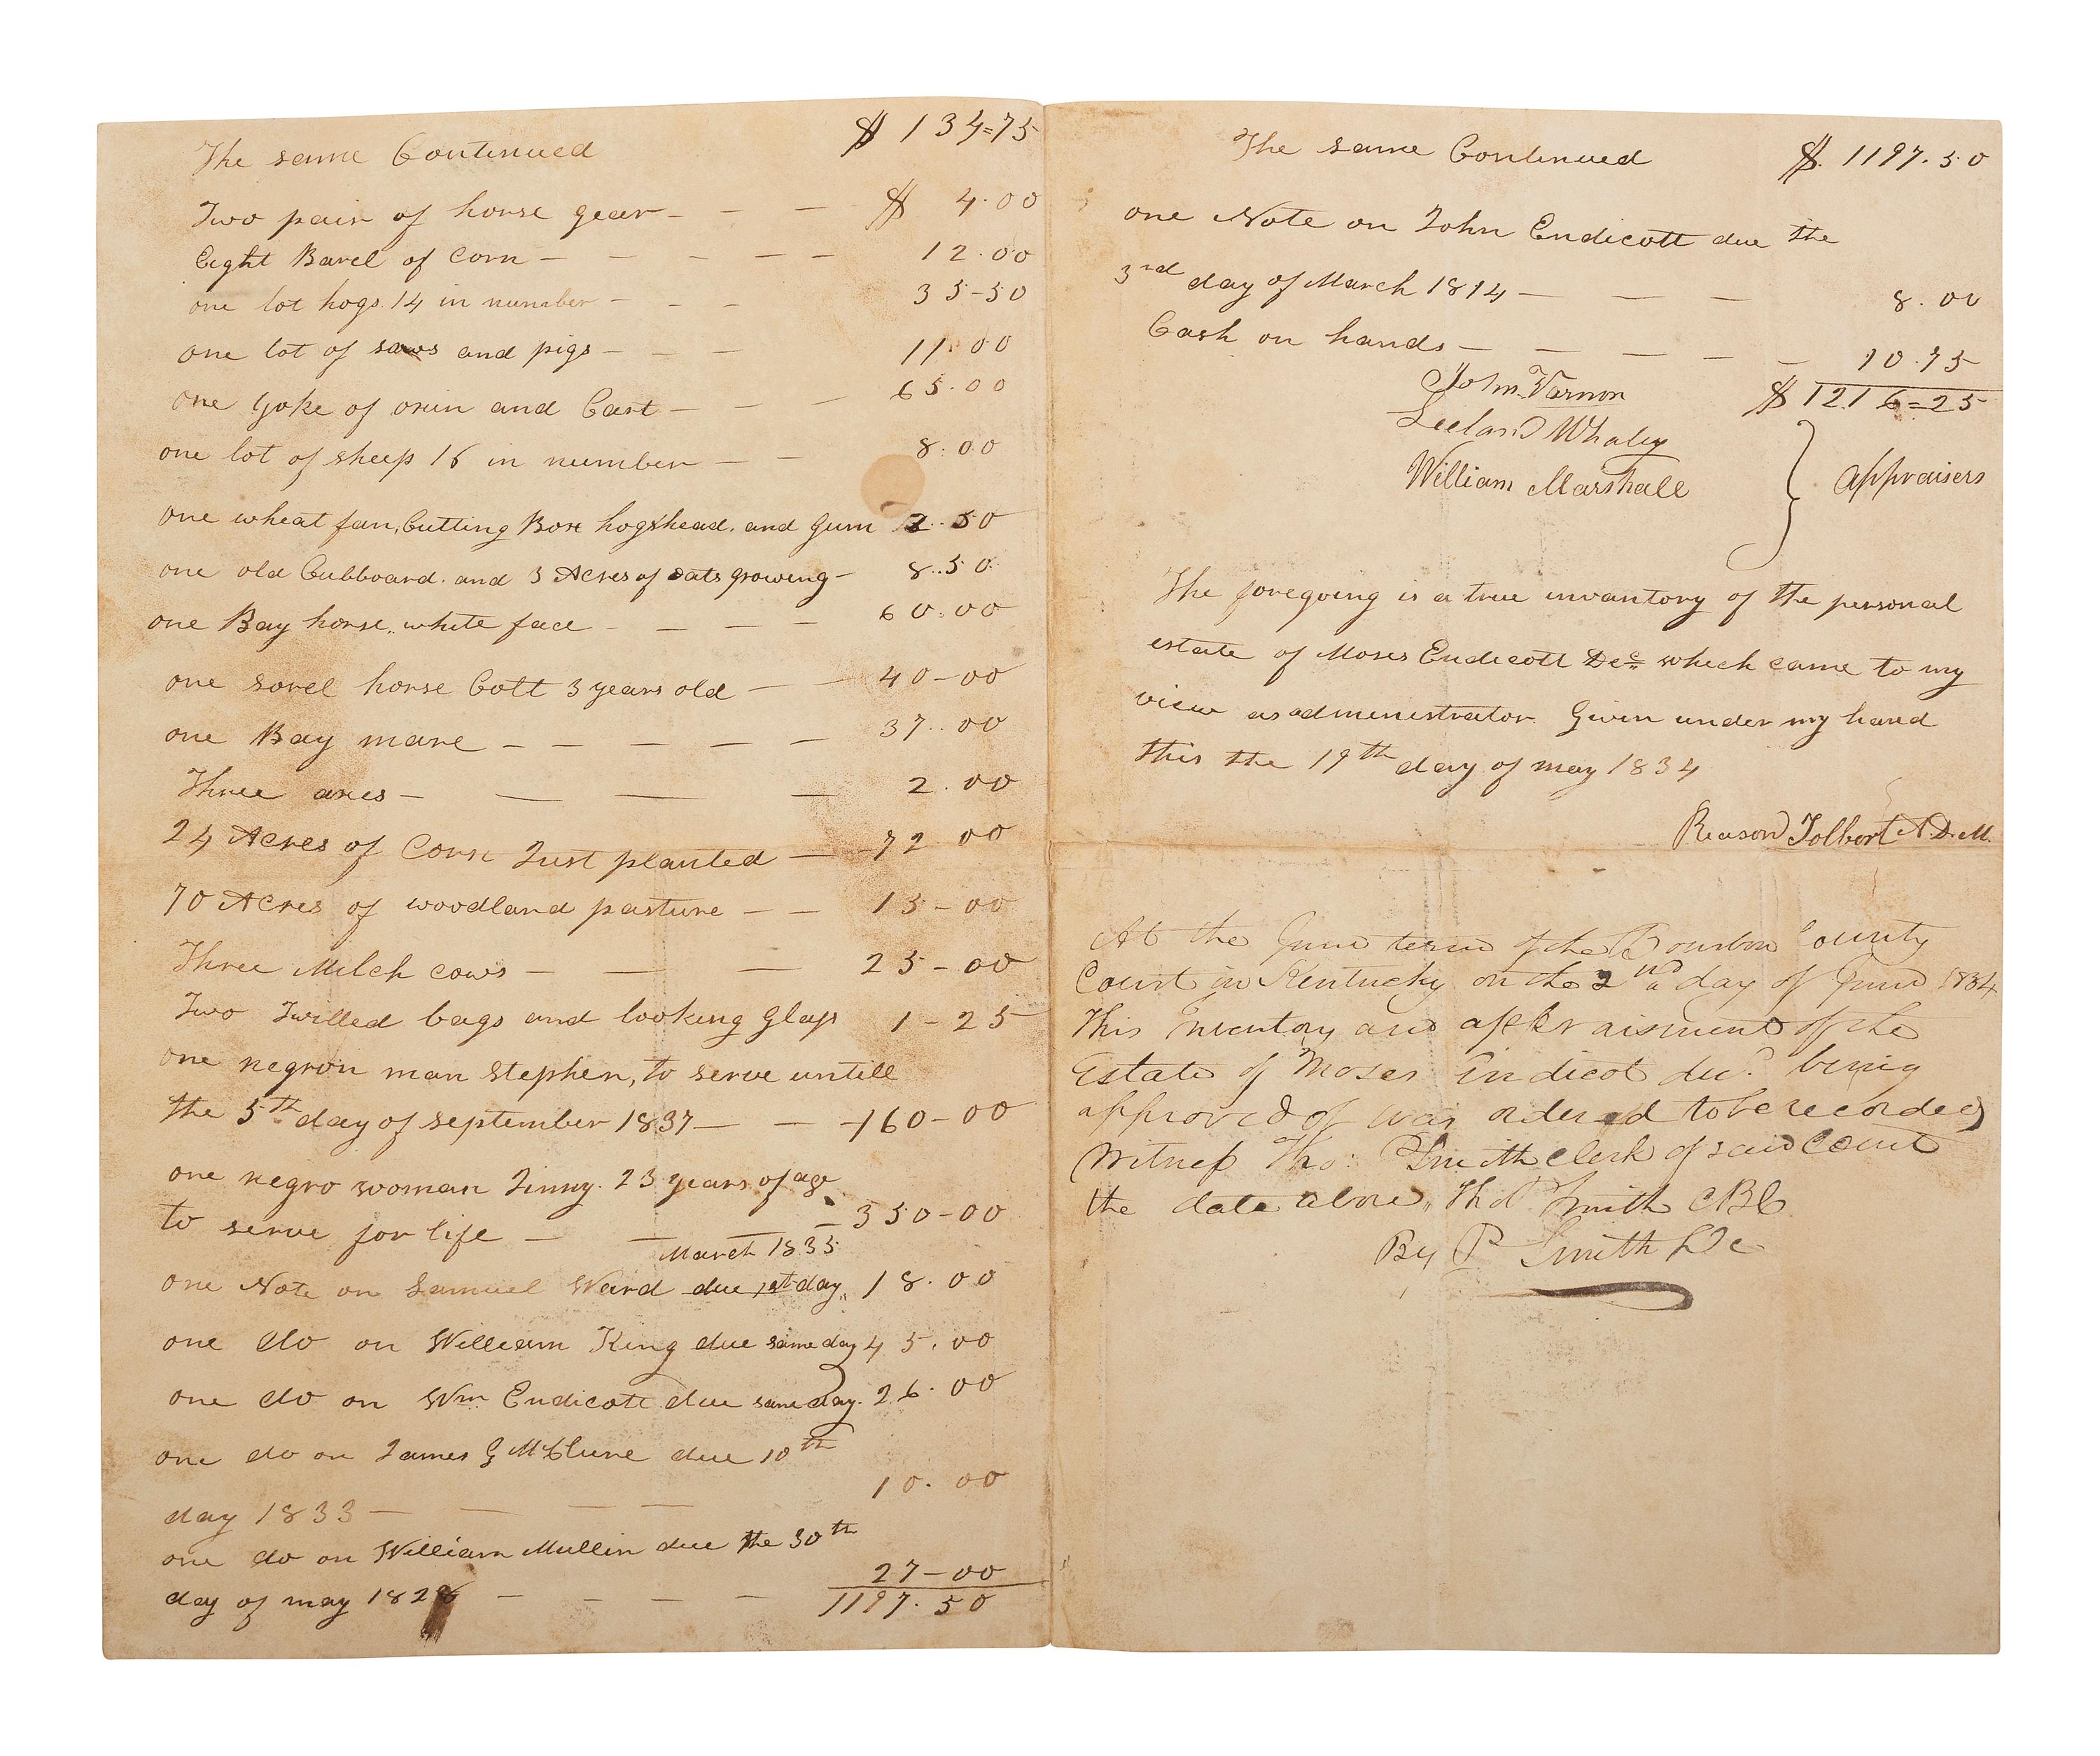 The same Continued $ 134=75
Two pair of horse gear - - - $ 4.00
Eight Barel of corn - - - - - 12.00
one lot hogs. 14 in number - - - 35-50
one lot of saws and pigs - - - 11.00
one yoke of oxin and Cart - - - 65.00
one lot of sheep 16 in number - - 8.00
one wheat fan, Cutting Box hogshead. and Gum 2.50
one old Cubboard. and 3 Acres of oats growing - 8.50
one Bay horse,, white face - - - - 60.00
one sorel horse Colt 3 years old - - 40-00
one Bay mare - - - - - 37..00
Three axes - - - - 2.00
24 Acres of Corn Just planted - 72 00
70 Acres of woodland pasture - - 15-00
Three Milch cows - - - 25-00
Two Twilled bags and looking Glass 1-25
one negron man Stephen, to serve untill
the 5th day of September 1837 - - - 160-00
one negro woman Jinny. 23 years of age
to serve for life - - - 350-00
March 1835
one Note on Samuel Ward due 1st day,, 18.00
one do on William King due same day 45.00
one do on Wm Endicott due same day. 26.00
one do on James G McClure due 10th
day 1833 - - - - 10.00
one do on William Mullin due the 30th
27-00
day of may 182 - - - -
1197.50
The same Continued $. 1197.50
one Note on John Endicott due the
3rd day of March 1814 - - - 8.00
Cash on hands - - - - - 10.75
John Varnon $ 1216=25
Leeland Whaley
William Marshall } appraisers
The foregoing is a true invantory of the personal
estate of Moses Endicott Dec which came to my
view as admenistrator. Given under my hand
this the 19th day of may 1834
Reason Tolbert A D.M.
At the June term of the Bourbon County
Court in Kentucky on the 2nd day of June 1834
This Inventory and appraisment of the
Estate of Moses Endicot decd. being
approved of was ordered to be recorded
Witness Tho: P Smith clerk of said Court
the date above,, Tho P Smith CBC
By P Smith Dc